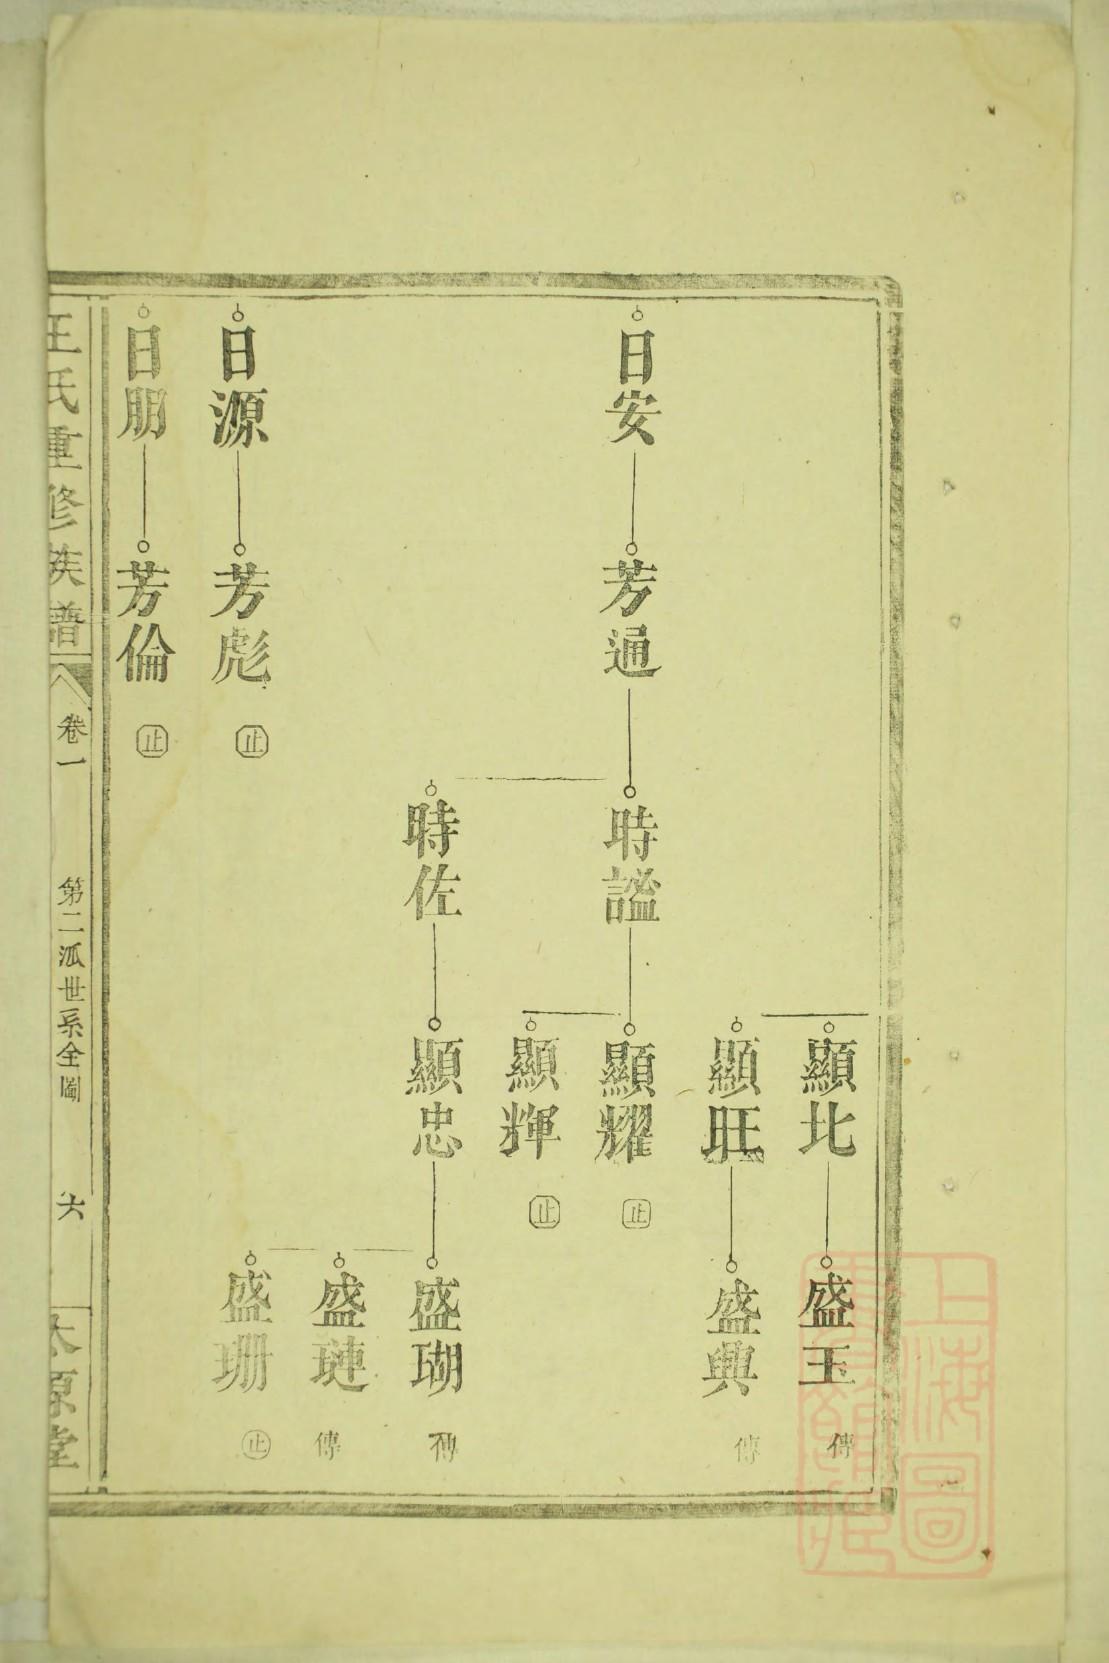 顯北
盛玉
傳
顯旺
盛興
傳
日安
芳通
時謐
顯耀
止
顯輝
止
時佐
顯忠
盛瑚
傳
盛璉
傳
盛珊
止
日源
芳彪
止
日朋
芳倫
止
王氏重修族譜
卷一
第二派世系全圖
六
太原堂
上海圖